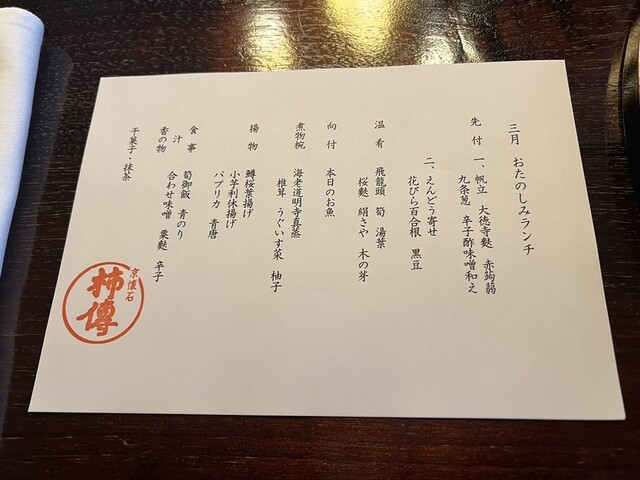 三月　おたのしみランチ
先付　一、帆立　大徳寺麩　赤蒟蒻
九条葱　辛子酢味噌和え
二、えんどう寄せ
花びら百合根　黒豆
温肴　飛龍頭　筍　湯葉
桜麩　絹さや　木の芽
向付　本日のお魚
煮物椀　海老道明寺真蒸
椎茸　うぐいす菜　柚子
揚物　鱒桜葉揚げ
小芋利休揚げ
パプリカ　青唐
食事　筍御飯　青のり
汁　合わせ味噌　粟麩　辛子
香の物
干菓子・抹茶
京懐石
柿傳